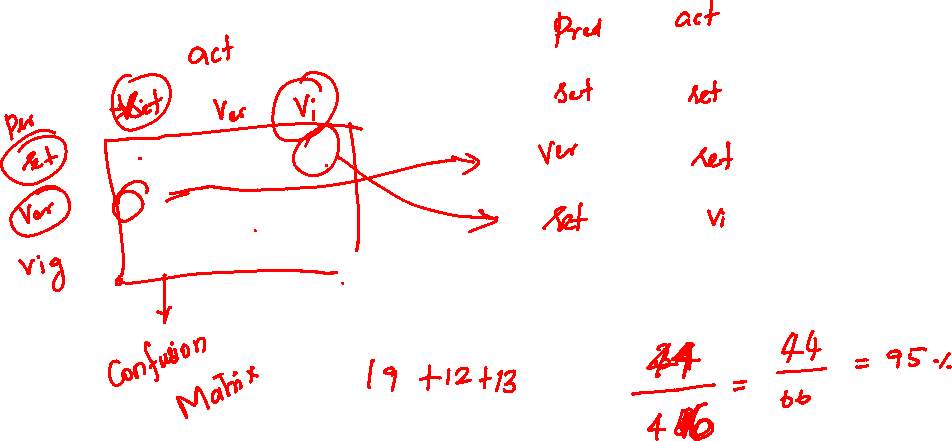 act
Set Ver Vi
Pre
Set
Ver
vig
Confusion
Matrix
Pred act
Set set
Ver set
Set Vi
19 +12+13
= 44/66 = 95%